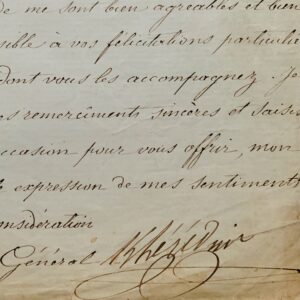 de me sont bien agréables et bien
sible à vos félicitations particuliè
dont vous les accompagnez. Je
es remercîments sincères et saisis
occasion pour vous offrir, mon
expression de mes sentiments
onsidération
Général Khérédine